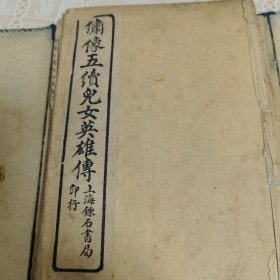 繡像五續兒女英雄傳
上海錬石書局
印行